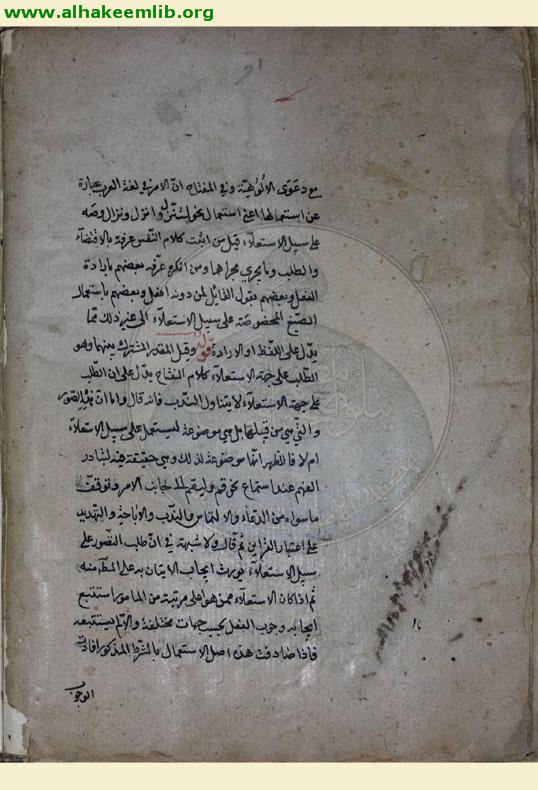 www.alhakeemlib.org
مع دعوى الالوهية وفي المفتاح ان الامر في لغة العرب عبارة
عن استعمالها اعني استعمال نحو لينزل وانزل ونزال وصه
على سبيل الاستعلاء قيل من اثبت كلام النفس عرفه بالاقتضاء
والطلب وما يجري مجراهما ومن انكره عرفه بعضهم بارادة
الفعل وبعضهم بقول القايل لمن دونه افعل وبعضهم باستعمال
الصيغ المخصوصة على سبيل الاستعلاء الى غير ذلك مما
يدل على اللفظ او الارادة قوله وقيل المقدر المشترك بينهما وهو
الطلب على جهة الاستعلاء كلام المفتاح يدل على ان الطلب
على جهة الاستعلاء لا يتناول الندب فانه قال واما ان هذه الصور
والتي هي من قبيلها هل هي موضوعة لتستعمل على سبيل الاستعلاء
ام لا فالاظهر انها موضوعة لذلك وهي حقيقة فيه لتبادر
الفهم عند استماع نحو قم وليقم الى جانب الامر وتوقف
ما سواه من الدعاء والالتماس والندب والاباحة والتهديد
على اعتبار القراين ثم قال ولا شبهة في ان طلب التصور على
سبيل الاستعلاء يورث ايجاب الاتيان به على المط منه
ثم اذا كان الاستعلاء ممن هو اعلى مرتبة من المامور استتبع
ايجابه وجوب الفعل بحسب جهات مختلفة والا لم يستتبعه
فاذا صادفت هذه اصل الاستعمال بالشرط المذكور افادت
الوجوب